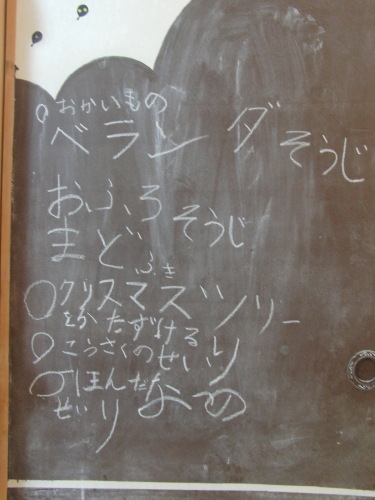 おかいもの
ベランダそうじ
おふろそうじ
まどふき
クリスマスツリー
をかたずける
こうさくのせいり
ほんだな
せいり